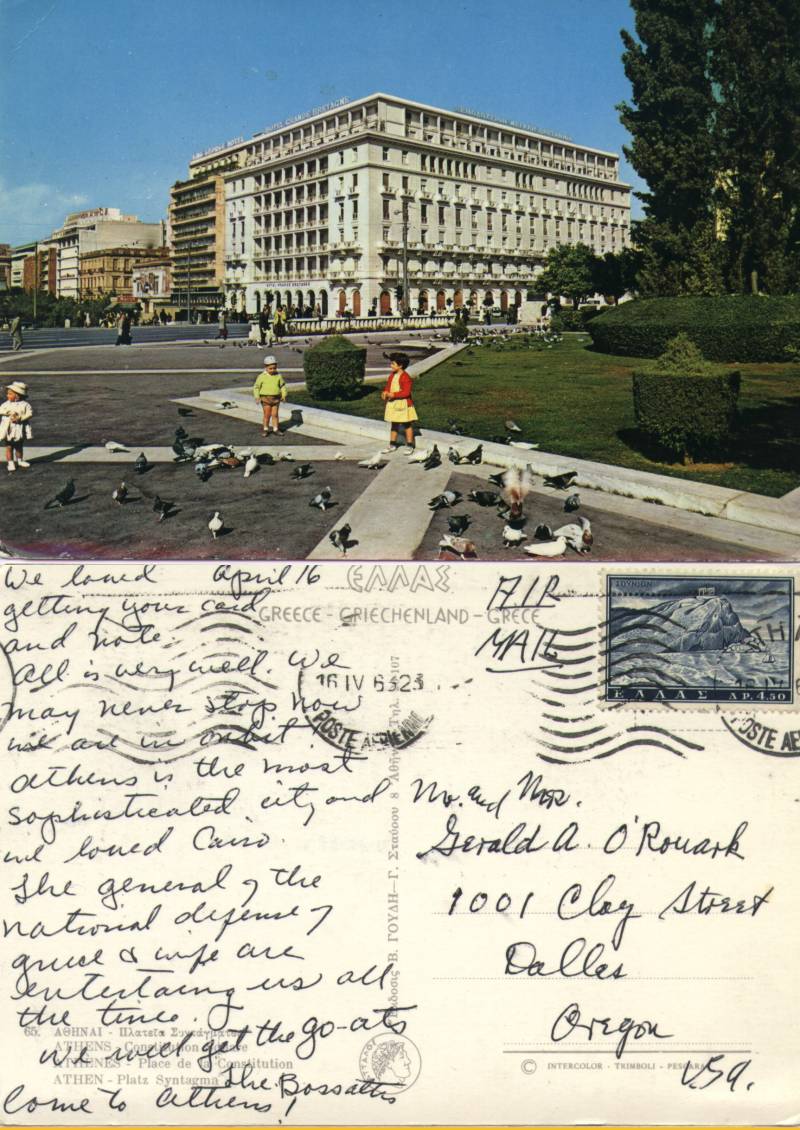 HOTEL GRANDE BRETAGNE
We loved April 16
getting your card
and note.
All is very well. We
may never stop now
we are in orbit.
Athens is the most
sophisticated city and
we loved Cairo.
The general of the
national defense of
greece & wife are
entertaing us all
the time.
We will get the go-ats
The Bossatts
Come to Athens!
ΕΛΛΑΣ
GREECE - GRIECHENLAND - GRECE
AIR
MAIL
ΣΟΥΝΙΟΝ
ΕΛΛΑΣ ΔΡ. 4.50
16 IV 63 23
POSTE AERIENNE
16 IV 6
POSTE AE
Ἔκδοσις Β. ΓΟΥΔΗ—Γ. Σταύρου 8 Ἀθῆναι Τηλ. 107
Mr. and Mrs.
Gerald A. O'Rouark
1001 Clay Street
Dallas
Oregon
USA.
65. ΑΘΗΝΑΙ - Πλατεῖα Συντάγματος
ATHENS - Constitution Square
ATHENES - Place de la Constitution
ATHEN - Platz Syntagma
© INTERCOLOR - TRIMBOLI - PESCARA